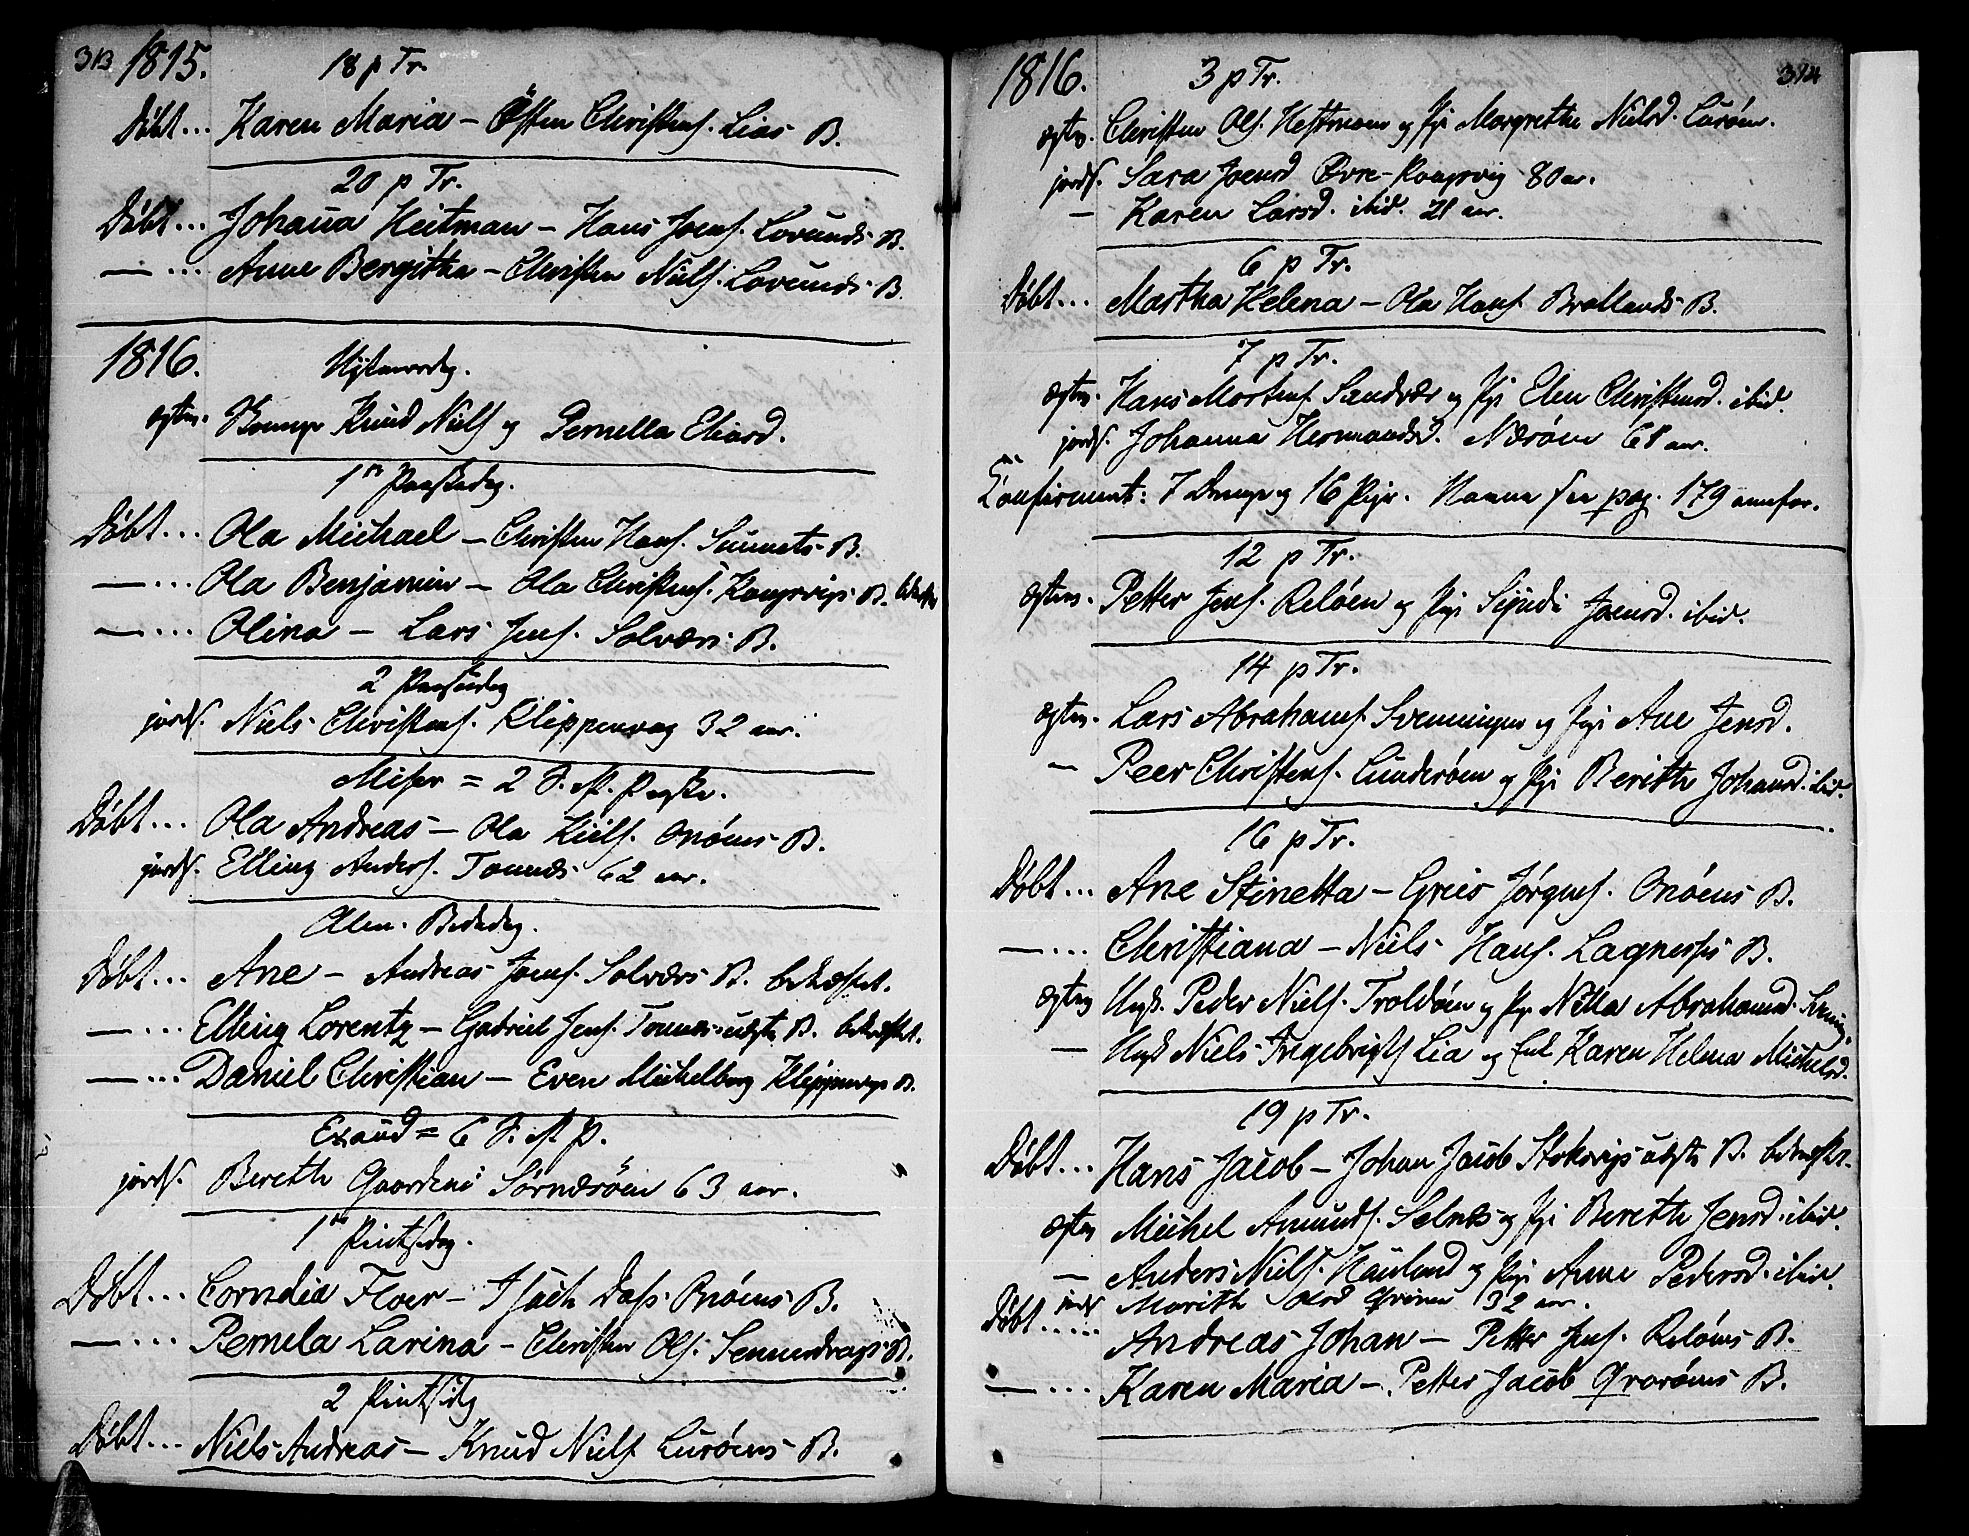 313 1815. 18 p Tr.
Döbt... Karen Maria – Östen Christens. Lias B.
20 p Tr.
Döbt... Johana Heitman – Hans Joens. Lovunds B.
— ... Anne Bergitha – Christen Niels. Lovunds B.
1816. Nÿtaarsdag.
egtev. Knud Niels og Pernella Eliasd.
1ste Paaskedag.
Döbt... Ola Michael – Christen Hans. B.
— ... Ola Benjamin – Ola Christens. Kongsvigs B.
— ... Olina – Lars Jens. Solværs B.
2 Paaskedag
jords. Niels Christens. Klippenvag 32 aar.
Miser = 2 S. Paaske.
Döbt... Ola Andreas – Ola Niels. Onöens B.
jords. Elling Anders. Tonnes 62 aar.
Alm. Bededag.
Döbt... Ane – Andreas Joens. Solværs B. bekræftet.
— ... Elling Lorentz – Gabriel Jens. Tonnes B. bekræftet.
— ... Daniel Christian – Even Michelborg Klippenvgs B.
Exaud = 6 S. P.
jords. Bereth Sörnæsöen 63 aar.
1ste Pintsedag.
Döbt... Cornelia Floer – Isach Dass Onöens B.
— ... Pernela Larina – Christen Ols. B.
2 Pintsedag
Döbt... Niels Andreas – Knud Niels Luröens B.
1816. 3 p Tr. 314
egtev. Christen Ols. Hestmoen og Pige Margrethe Nielsd. Luröen.
jords. Sara Joensd Övre-Kongsvig 80 ar.
— Karen Larsd. ibid. 21 aar.
6 p Tr.
Döbt... Martha Helena – Ola Hans. Bratlands B.
7 p Tr.
egtev. Hans Mortens. Sandvær og Pige Elen Christensd. ibid.
jords. Johanna Hermandsd. Næröen 68 aar.
Confirment: 7 Drenge og 16 Piger. Navne see pag. 179 annför.
12 p Tr.
egtev. Petter Jens. Relöen og Pige Joensd. ibid.
14 p Tr.
egtev. Lars Abrahams. Svenningen og Pige Ane Jensd.
— Peer Christens. Lunderöen og Pige Bereth Johansd. ibid.
16 p Tr.
Döbt... Ane Stinetta – Greis Jörgens. Onöens B.
— ... Christiana – Niels Hans. B.
egtev Ungk. Peder Niels. Troldöen og Pige Netta Abrahamsd.
— Ungk Niels Ingebrigts Lia og Enk Karen Helena Michelsd.
19 p Tr.
Döbt... Hans Jacob – Johan Jacob Stokvigs B. bekræftet.
egtev Michel Amunds. Selnes og Pige Bereth Jensd. ibid.
— Anders Niels. og Pige Anne Pedersd. ibid.
jords Marith Olsd 32 aar.
Döbt..... Andreas Johan – Petter Jens. Relöens B.
— ... Karen Maria – Petter Jacob B.